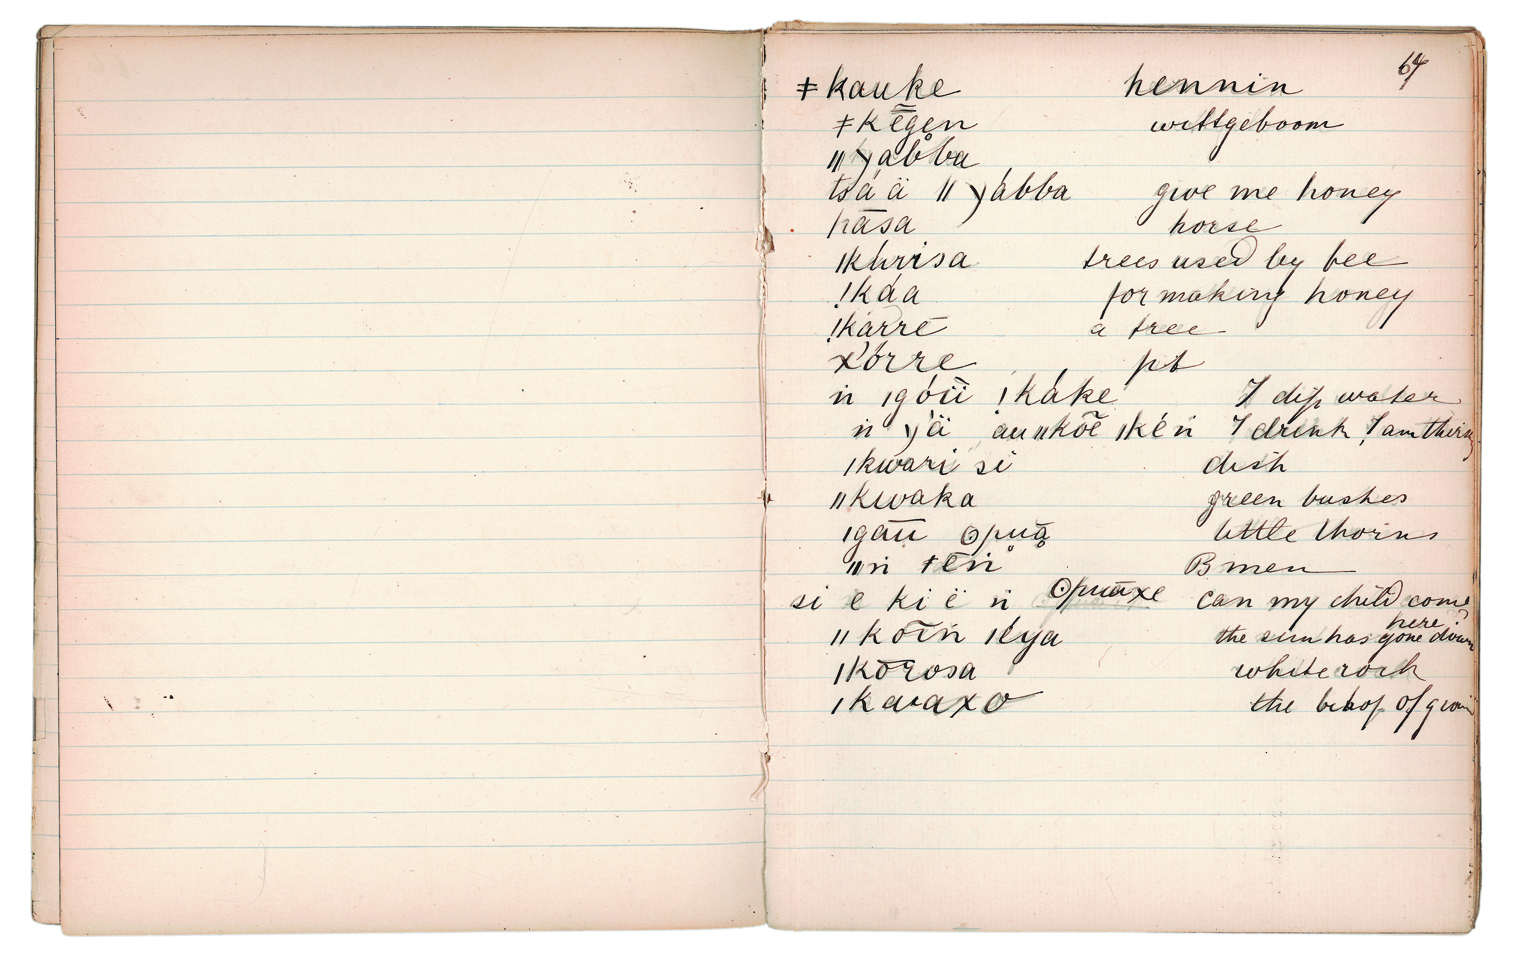 64
ǂkauke hennin
ǂkēgen wittgeboom
ǁyabba
tsá ä ǁ yábba give me honey
hāsa horse
ǀkhrisa trees used by bee
ǃkáa for making honey
ǃkarrē a tree
x'órre pt
ṅ ǀgóïï ǃkáke I dip water
ṅ yä au ǁkõē ǀkéṅ I drink, I am thirsty
ǀkwari si dish
ǁkwaka green bushes
ǀgaū ʘpuą little thorns
ǁṅ ǂēṅ B men
si e ki ë ṅ ʘpuaxe can my child come
here?
ǁkōïṅ ǀéya the sun has gone down
ǀkōrosa white rock
ǀkaaxo the of